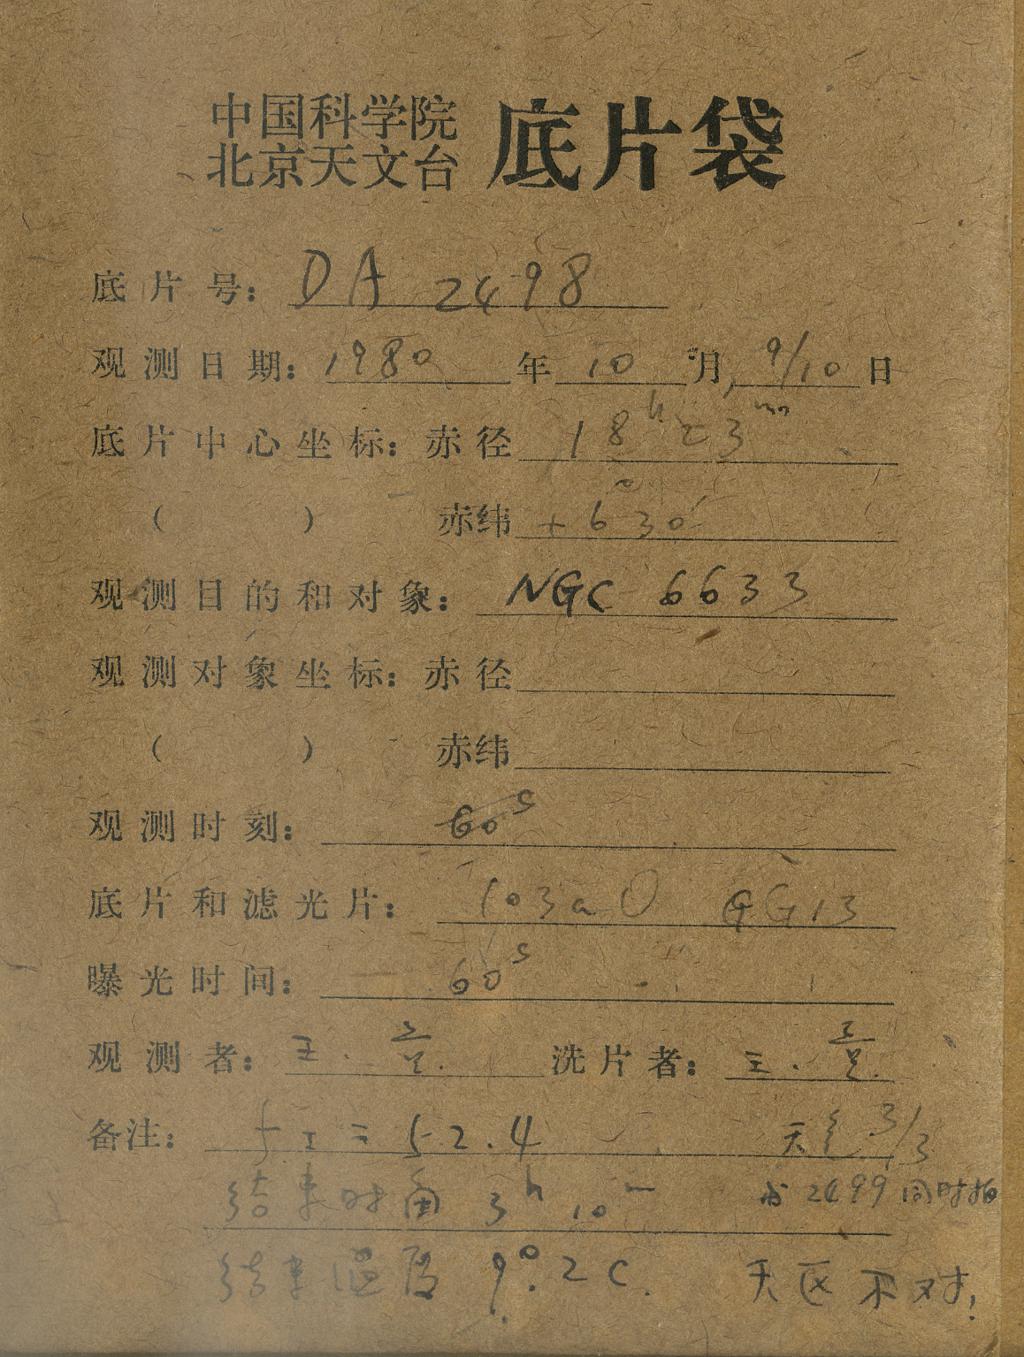 中国科学院
北京天文台
底片袋
底片号: DA 2498
观测日期: 1980 年 10 月 9/10 日
底片中心坐标: 赤径 18ʰ23ᵐ
( ) 赤纬 +6°30′
观测目的和对象: NGC 6633
观测对象坐标: 赤径
( ) 赤纬
观测时刻: 60ˢ
底片和滤光片: 103aO GG13
曝光时间: 60ˢ
观测者: 王. 洗片者: 王.
备注: = 52.4 天气 3/3
结束时角 3ʰ10ᵐ 2499 同时拍
结束温度 9°.2C. 天区不对!